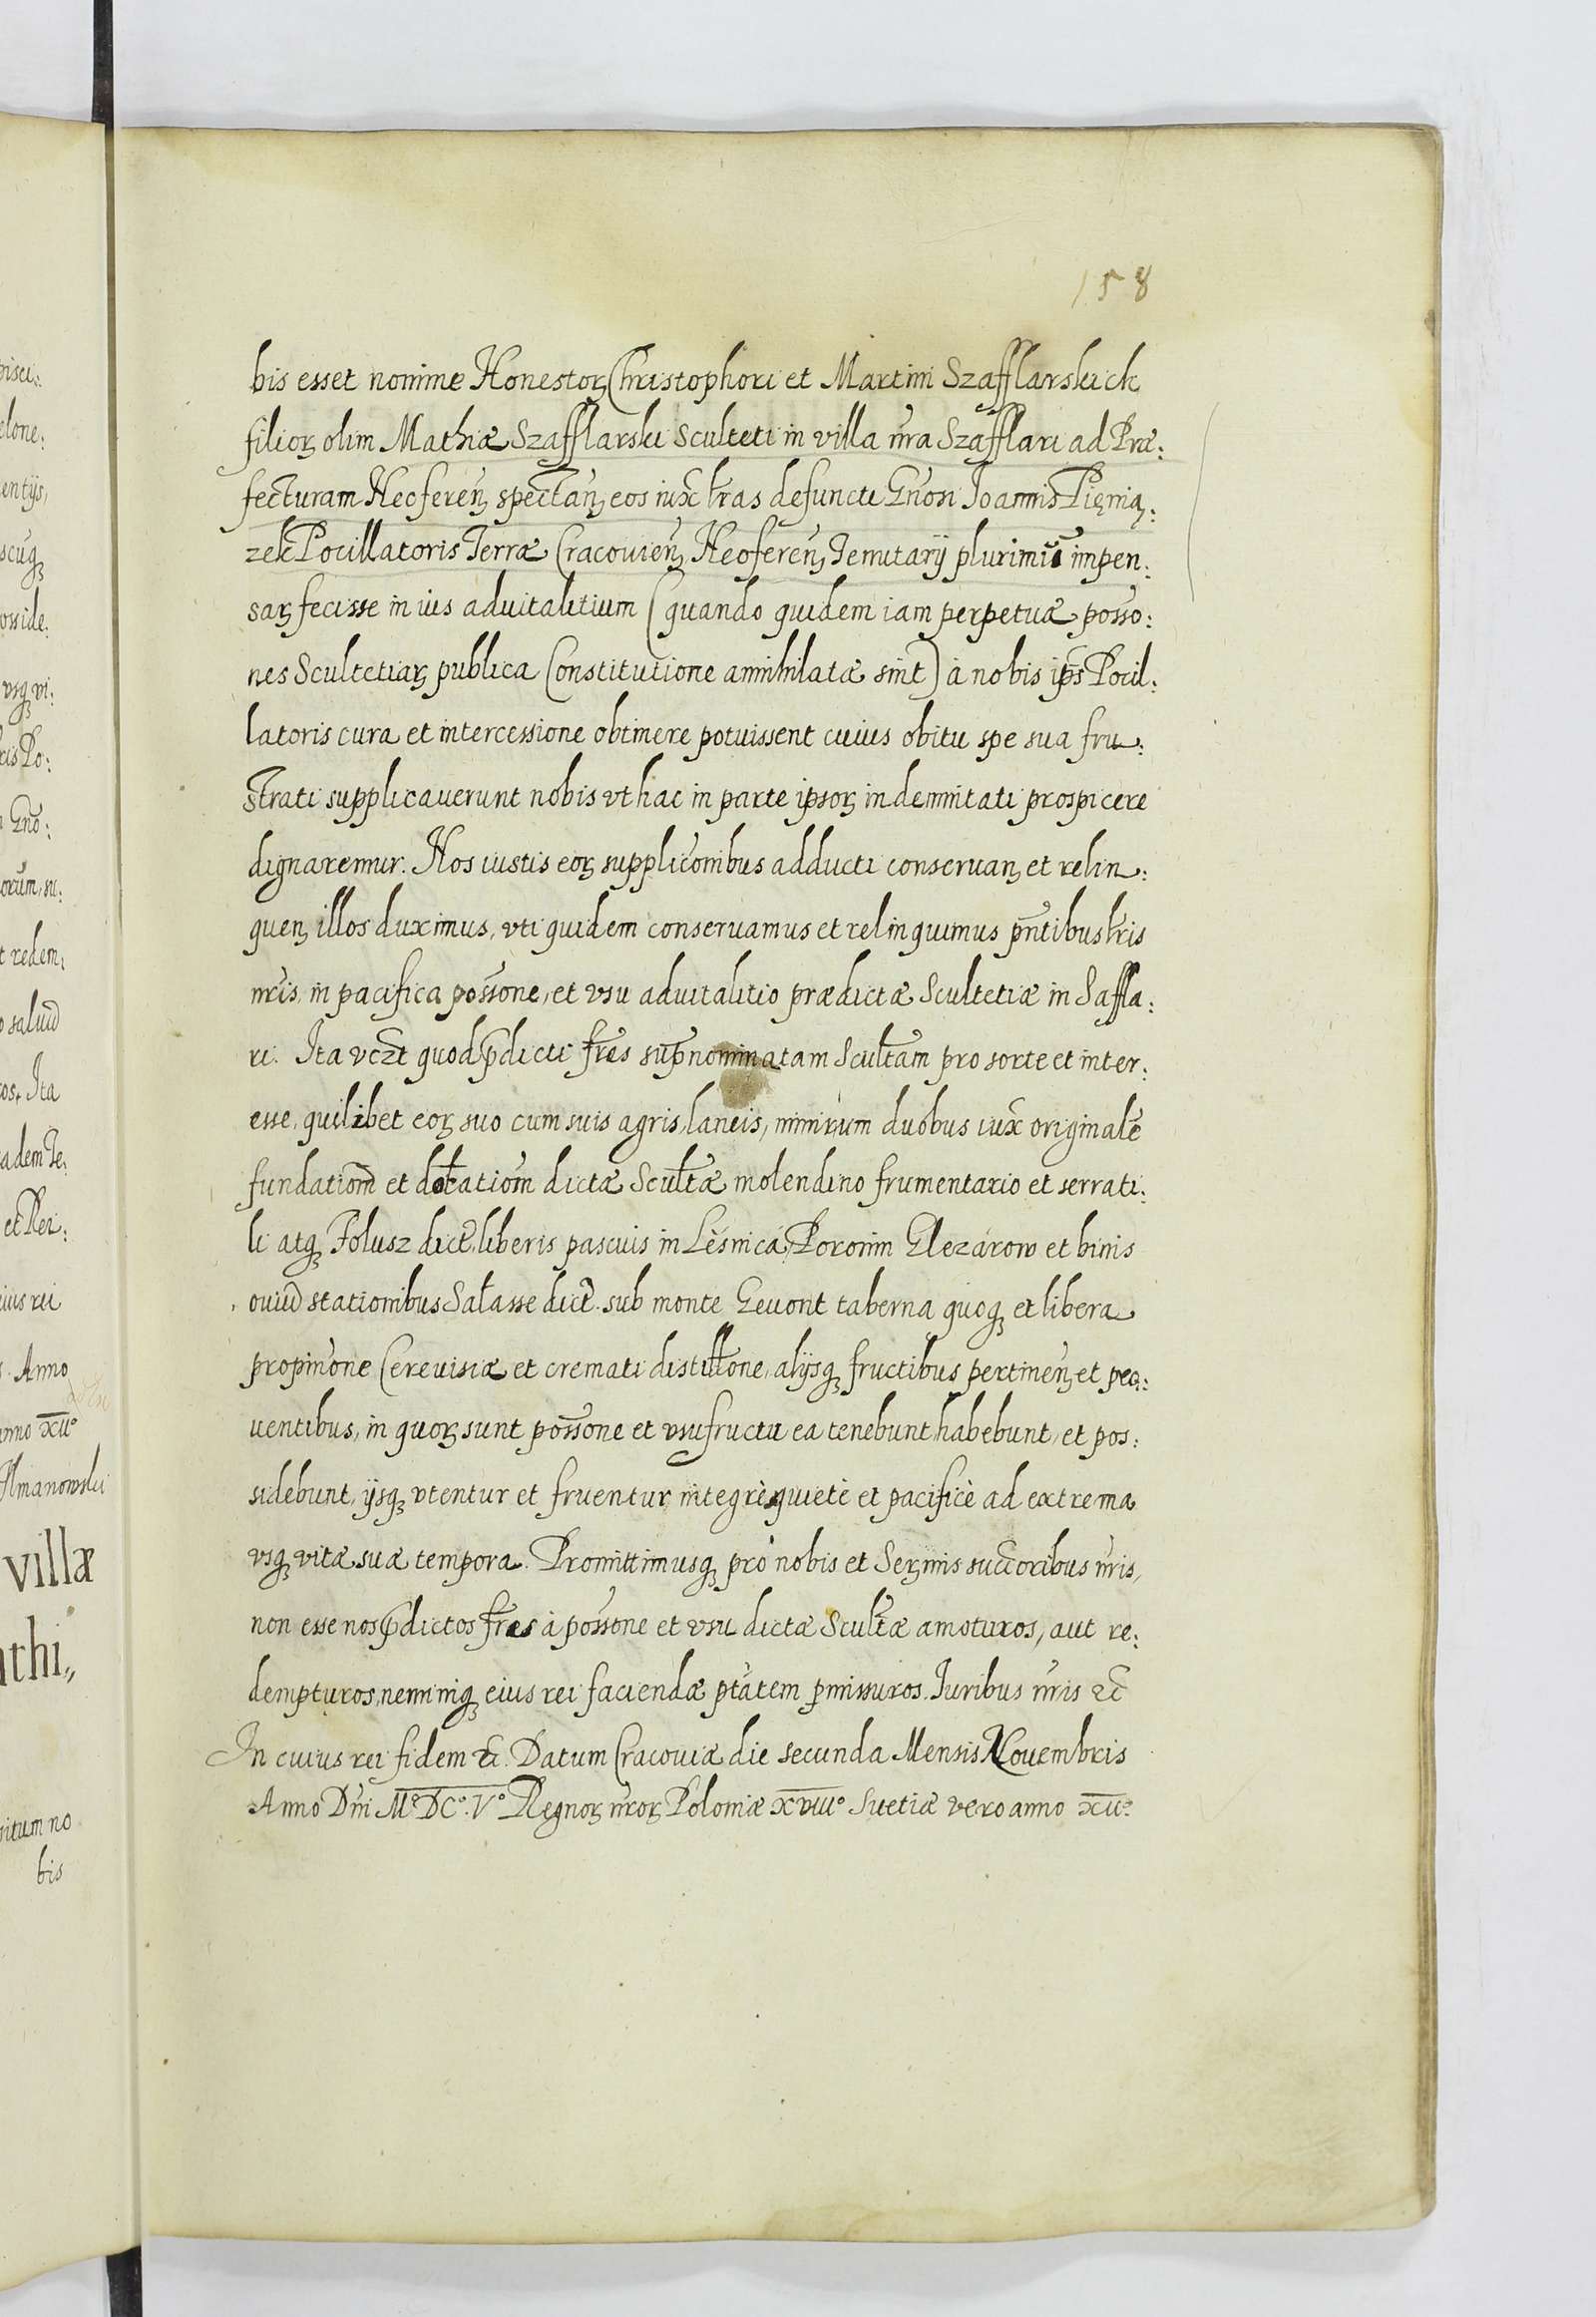 158
bis esset nomine Honestoꝝ Christophori et Martini Szafflarskich
filioꝝ olim Mathiæ Szafflarski Sculteti in villa nr̃a Szafflari ad Præ:
fecturam Neoferen̄ spectan̄ eos iux̃ lr̃as defuncti Gn̄osi Joannis Pięnią:
zek Pocillatoris Terræ Cracouien̄ Neoferen̄ Tenutarij plurimū impen:
saꝝ fecisse in ius aduitalitium (quando quidem iam perpetuæ posso:
nes Scultetiaꝝ publica Constitutione annihilatæ sint) à nobis ip̄s Pocil:
latoris cura et intercessione obtinere potuissent cuius obitu spe sua fru:
strati supplicauerunt nobis vt hac in parte ipsoꝝ indemnitati prospicere
dignaremur. Nos iustis eoꝝ supplico̅nibus adducti conseruan̄ et relin:
quen̄ illos duximus, vti quidem conseruamus et relinquimus pn̄tibus lr̃is
nr̃is, in pacifica posso̅ne, et vsu aduitalitio prædictæ Scultetiæ in Saffla:
ri. Ita vcz̃t quod p̄dicti fr̃es sup̄nominatam Scult̃am pro sorte et inter:
esse, quilibet eoꝝ suo cum suis agris, laneis, nimirum duobus iux̃ originalē
fundatiom̄ et dotatiom̄ dictæ Scult̃æ molendino frumentario et serrati:
li atqꝫ Folusz dict̃, liberis pascuis in Leśnica, Poronin Elezarow et binis
ouiū stationibus Sałasse dict̃. sub monte Geuont taberna quoqꝫ et libera
propino̅ne Cereuisiæ et cremati distillo̅ne, alijsqꝫ fructibus pertinen̄ et pro:
uentibus, in quoꝝ sunt posso̅ne et vsufructu ea tenebunt habebunt, et pos:
sidebunt, ijsqꝫ vtentur et fruentur integrè quietè et pacificè ad extrema
vsqꝫ vitæ suæ tempora. Promittimusqꝫ pro nobis et Serm̄is succ̄oribus nr̃is,
non esse nos p̄dictos fr̃es à posso̅ne et vsu dictæ Scult̃æ amoturos, aut re:
dempturos, neminiqꝫ eius rei faciendæ ptātem ꝑmissuros. Iuribus nr̃is ꝛc̃
In cuius rei fidem ꝛc̃. Datum Cracouiæ die secunda Mensis Nouembris
Anno Dn̄i M° DC°. V° Regnoꝝ nr̃oꝝ Poloniæ xviii° Suetiæ vero anno xii°